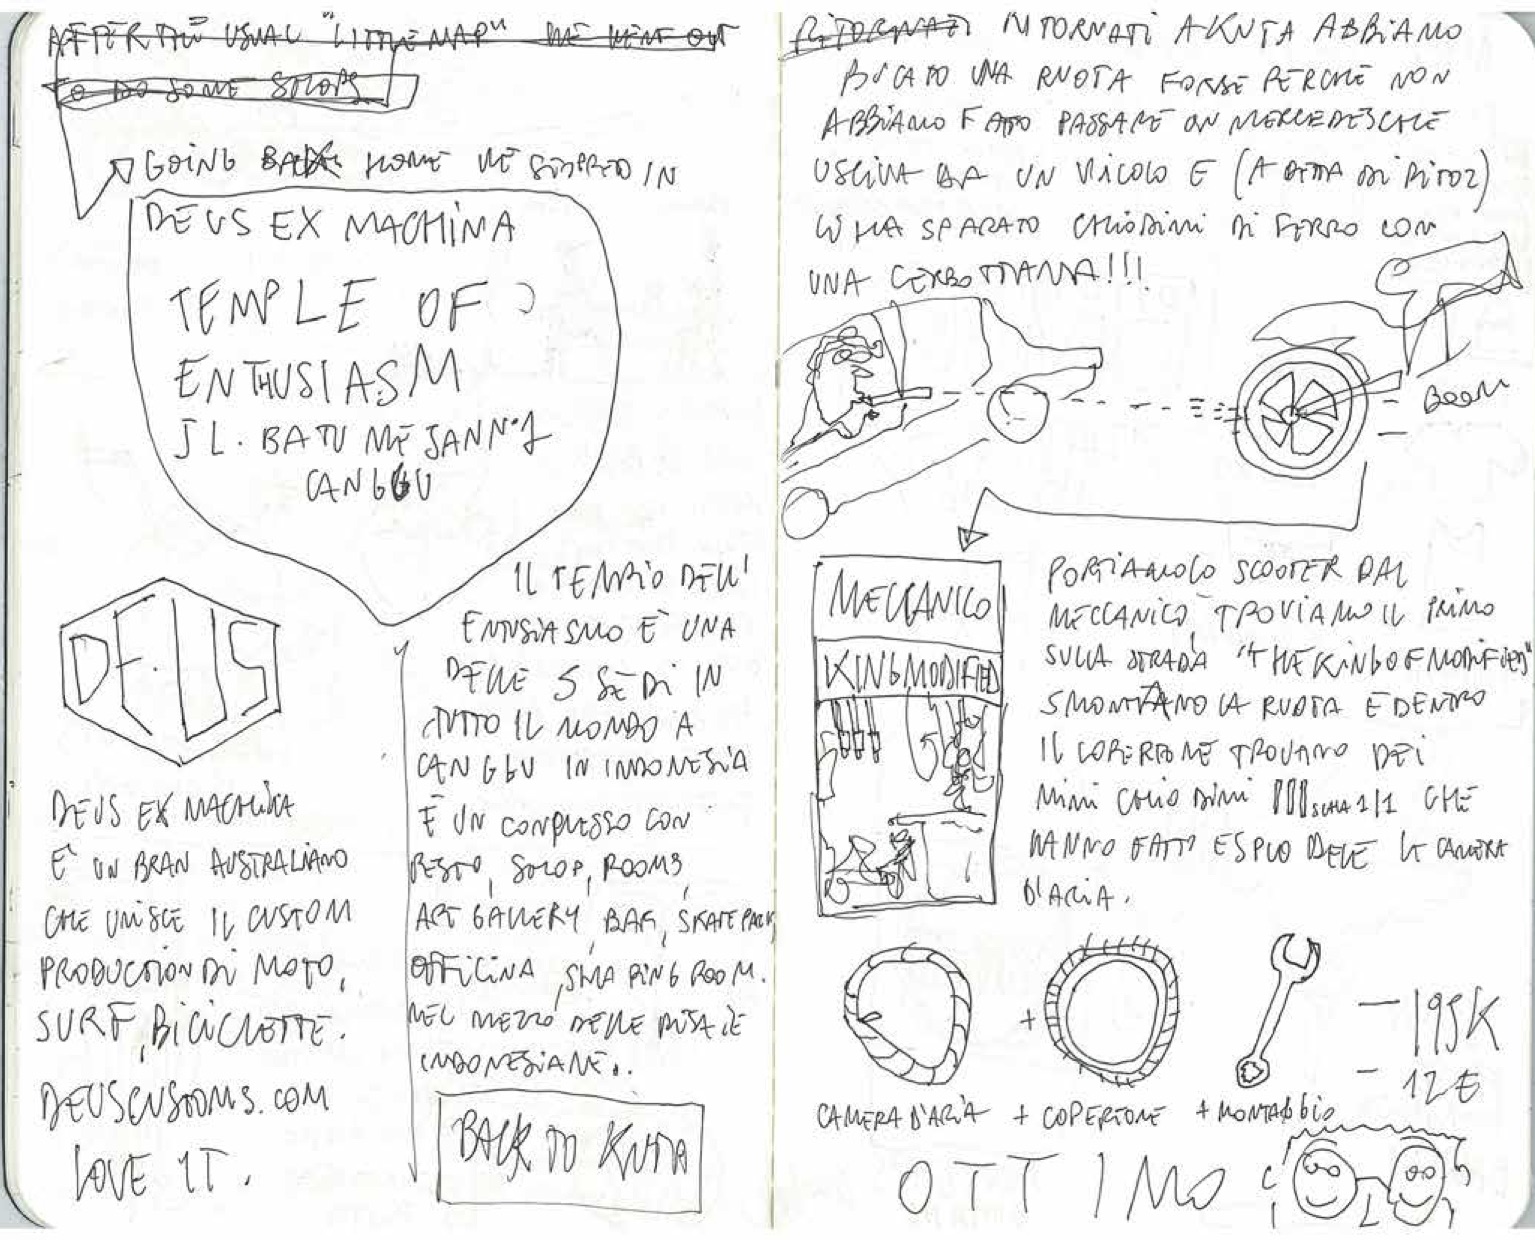 AFTER THE USUAL "LITTLE NAP" WE WENT OUT
TO DO SOME SOLOPS
GOING BACK HOME WE STOPPED IN
DEUS EX MACHINA
TEMPLE OF
ENTHUSIASM
JL. BATU MEJAN N°1
CANGGU
DEUS
DEUS EX MACHINA
E' UN BRAN AUSTRALIANO
CHE UNISCE IL CUSTOM
PRODUCTION DI MOTO,
SURF, BICICLETTE.
DEUSCUSTOMS.COM
LOVE IT.
IL TEMPIO DELL'
ENTUSIASMO È UNA
DELLE 5 SEDI IN
TUTTO IL MONDO A
CANGGU IN INDONESIA
È UN COMPLESSO CON
RESTO, SOLOP, ROOMS,
ART GALLERY, BAR, SKATE PARK,
OFFICINA, SHAPING ROOM.
NEL MEZZO DELLE RISAIE
INDONESIANE.
BACK TO KUTA
RITORNATI RITORNATI A KUTA ABBIAMO
BUCATO UNA RUOTA FORSE PERCHÉ NON
ABBIAMO FATTO PASSARE UN MERCEDES CHE
USCIVA DA UN VICOLO E (A DETTA DI RITOZ)
CI HA SPARATO CHIODINI DI FERRO CON
UNA CERBOTTANA!!!
BOOM
MECCANICO
KINGMODIFIED
PORTIAMO LO SCOOTER DAL
MECCANICO TROVIAMO IL PRIMO
SULLA STRADA "THE KING OF MODIFIED"
SMONTANO LA RUOTA E DENTRO
IL COPERTONE TROVANO DEI
MINI CHIODINI SCALA 1/1 CHE
HANNO FATTO ESPLODERE LA CAMERA
D'ARIA.
+
— 195K
- 12 €
CAMERA D'ARIA + COPERTONE + MONTAGGIO
OTTIMO